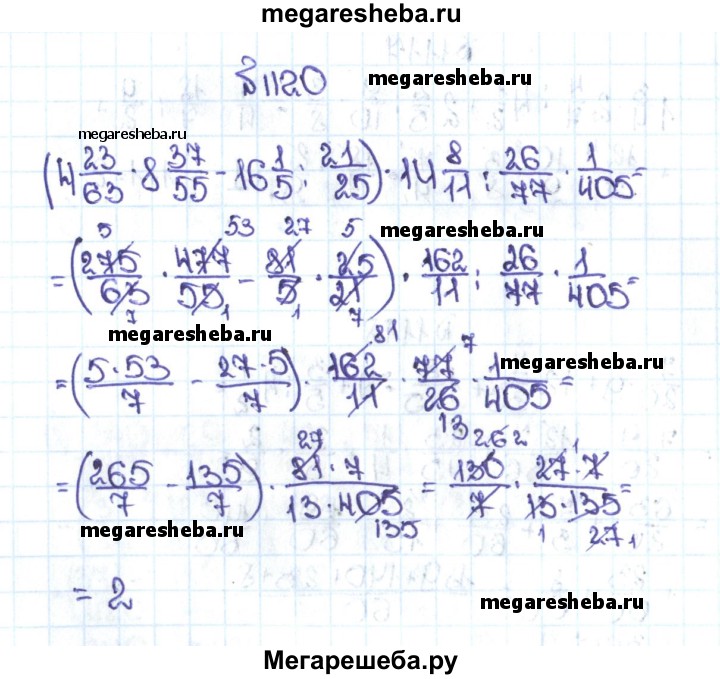 megaresheba.ru
№1120
megaresheba.ru
megaresheba.ru
(4 23/63 · 8 37/55 - 16 1/5 : 21/25) · 14 8/11 : 26/77 · 1/405 =
megaresheba.ru
5 53 27 5
= (275/63 · 477/55 - 81/5 · 25/21) · 162/11 : 26/77 · 1/405 =
7 1 1 7
megaresheba.ru
81 7
megaresheba.ru
= (5·53/7 - 27·5/7) · 162/11 · 77/26 · 1/405 =
13
27 26 2 1
= (265/7 - 135/7) · 81·7/13·405 = 130/7 · 27·7/13·135 =
135 1 27 1
megaresheba.ru
= 2
megaresheba.ru
Мегарешеба.ру